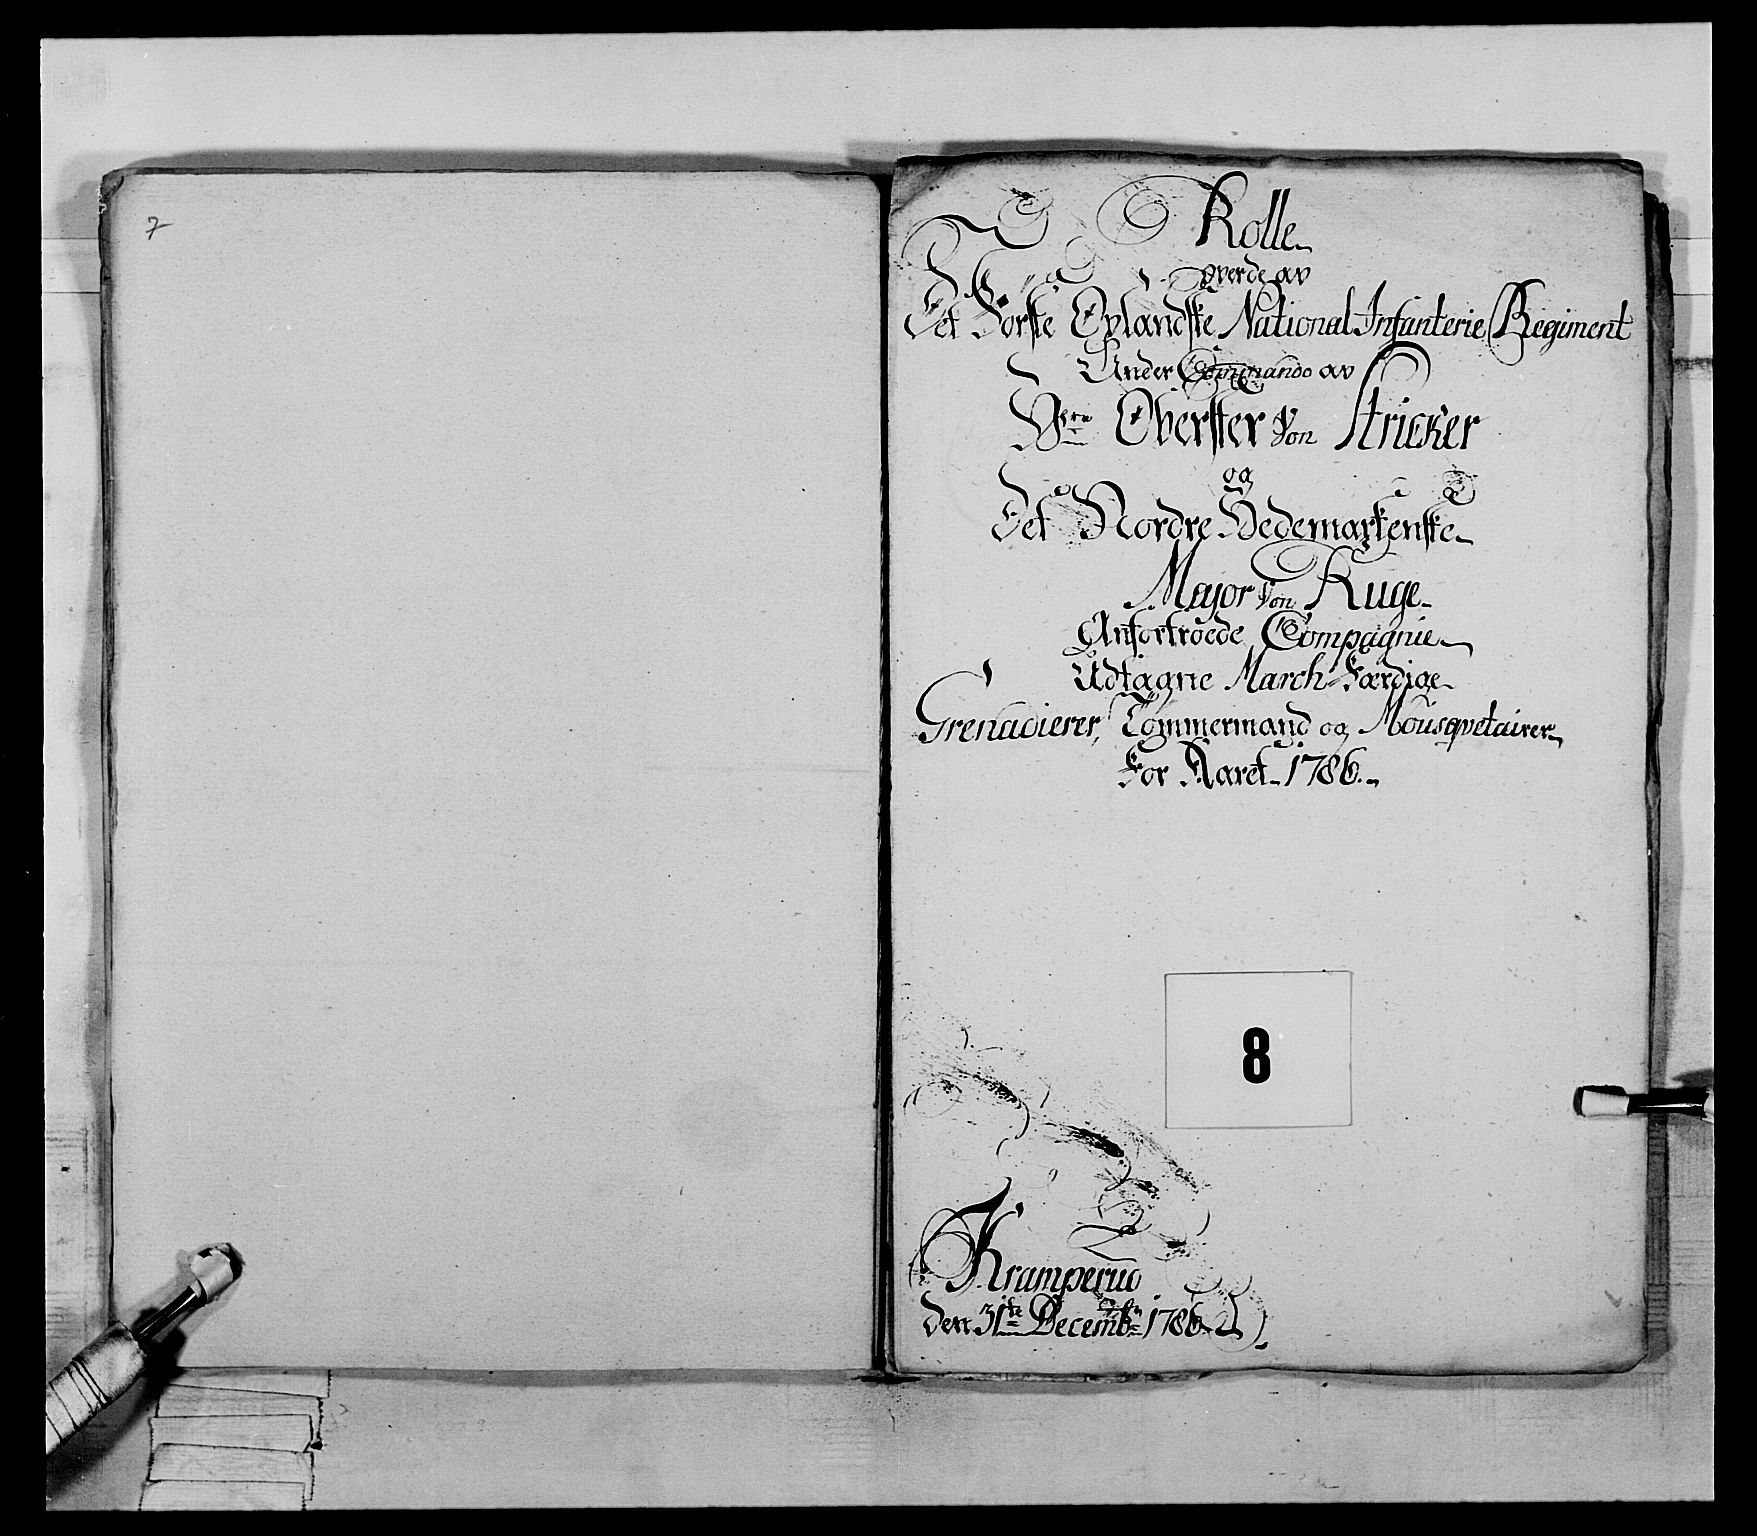 7
Rolle
Qverde av
Det Første Oplandske National Infanterie Regiment
Under Commando av
Hrn Oberster von Stricker
og
Det Nordre Hedemarkenske
Major von Kuge
Anfortroede Compagnie
Udtagne March-Færdige
Grenadierer, Tømmermand og Mousqvetairer
For Aaret 1786.
8
Kramperud
den 31te Decembr 1786.